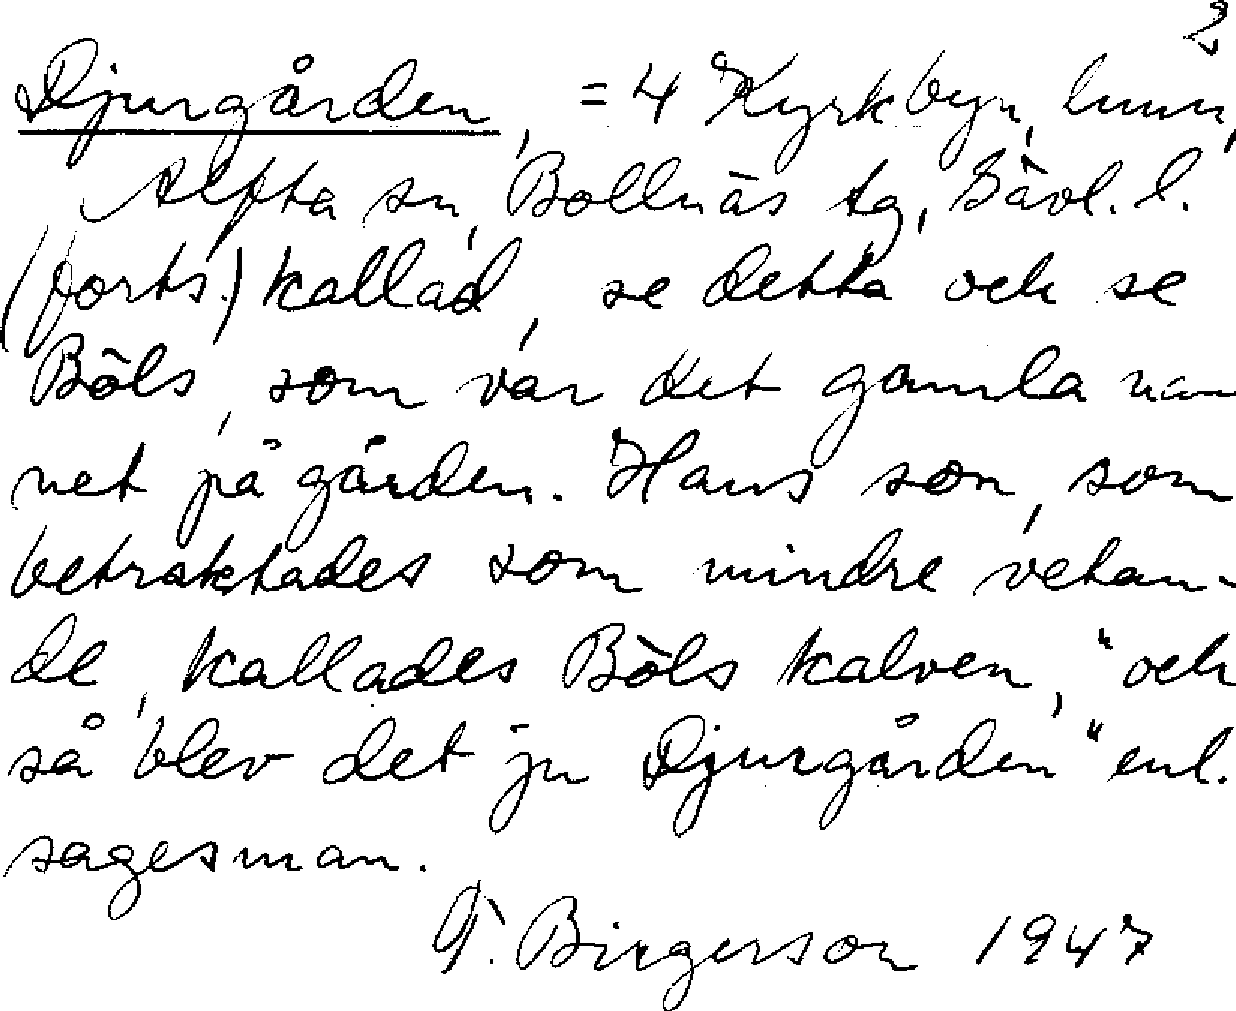 2
Djurgården, = 4 Kyrkbyn, hmn,
Alfta sn, Bollnäs tg, Gävl. l.
(forts.) kallad, se detta och se
Böls, som var det gamla nam-
net på gården. Hans son, som
betraktades som mindre vetan-
de, kallades Böls kalven, "och
så blev det ju Djurgården" enl.
sagesman.
T. Birgerson 1947